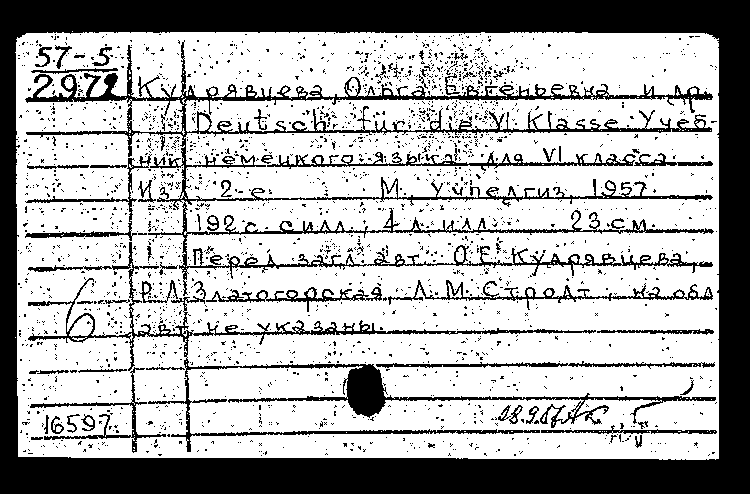 57-5
2972 Кудрявцева, Ольга Евгеньевна и др.
Deutsch für die VI Klasse. Учеб-
ник немецкого языка для VI класса.
Изд. 2-е. М., Учпедгиз, 1957.
192 с. с илл.; 4 л. илл. 23 см.
Перед загл. авт.: О.Е. Кудрявцева,
Р.Л. Златогорская, Л.М. Стродт; на обл.
авт. не указаны.
6
16597